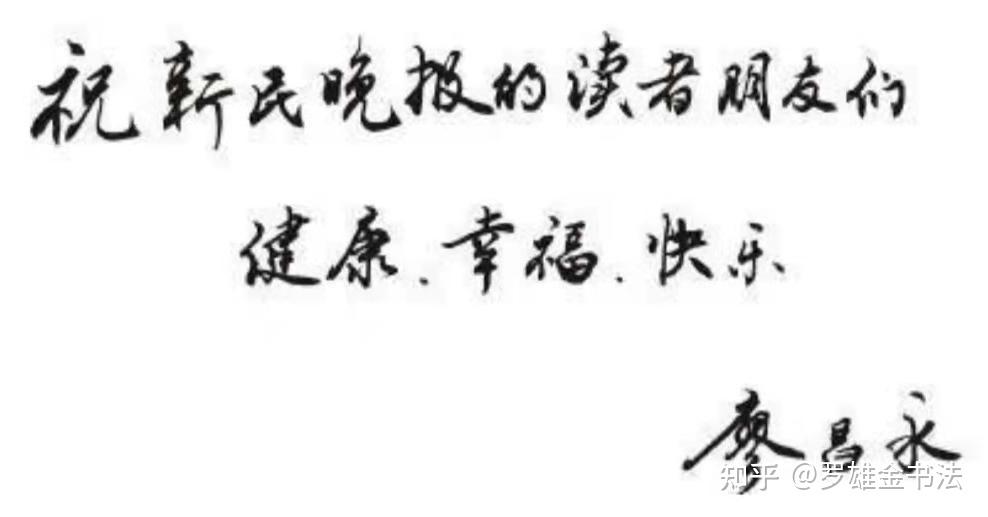 祝新民晚报的读者朋友们
健康、幸福、快乐
廖昌永
知乎 @罗雄金书法